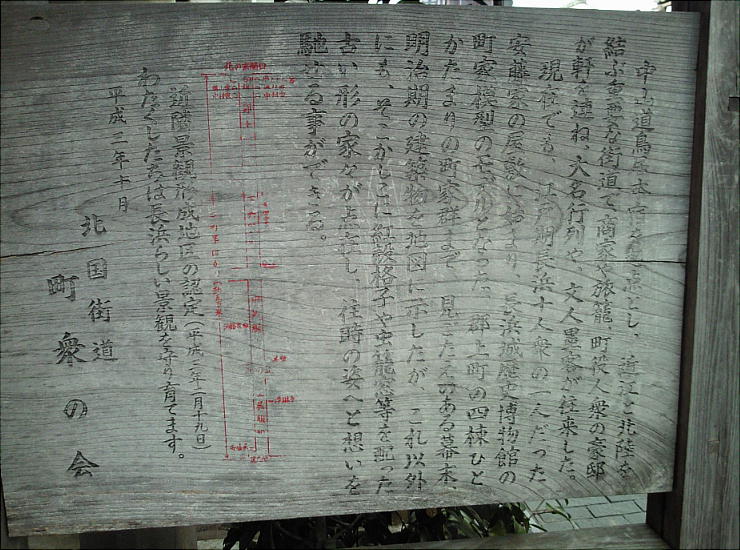 中山道鳥居本宿を起点とし、近江と北陸を
結ぶ重要な街道で商家や旅籠、町役人衆の豪邸
が軒を連ね、大名行列や、文人墨客が往来した。
現在でも、江戸期長浜十人衆の一人だった
安藤家の屋敷に始まり、長浜城歴史博物館の
町家模型のモデルとなった、郡上町の四棟ひと
かたまりの町家群まで、見ごたえのある幕末、
明治期の建築物を地図に示したが、これ以外
にも、そこかしこに紅殻格子や虫籠窓等を配った
古い形の家々が点在し、往時の姿へと想いを
馳せる事ができる。
近隣景観形成地区の認定(平成二年二月十九日)
わたくしたちは長浜らしい景観を守り育てます。
平成三年十月
北国街道
町衆の会